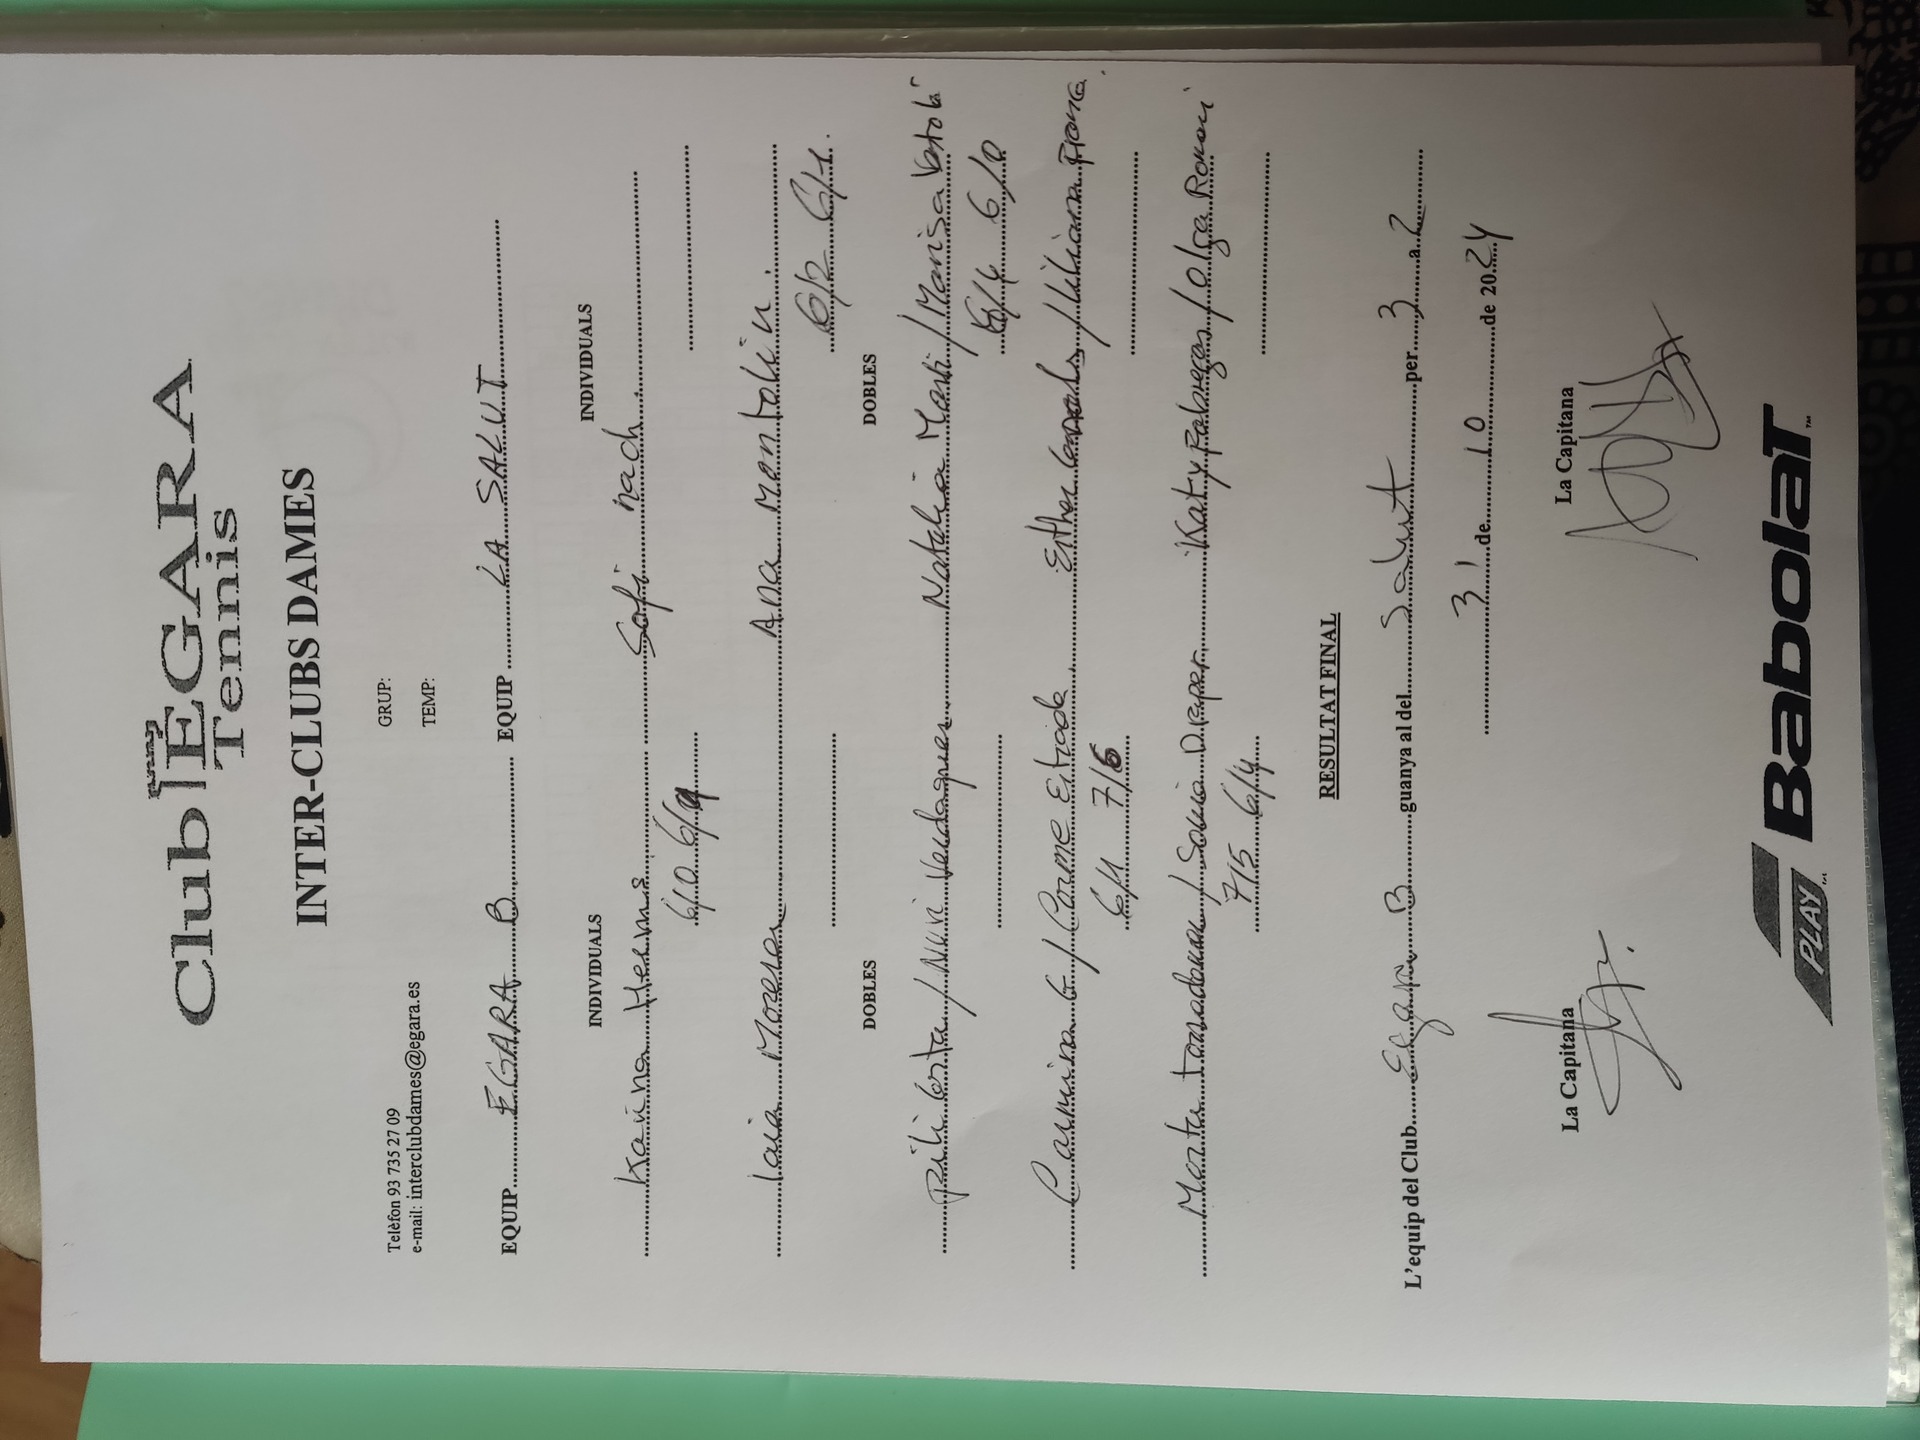 Club EGARA
Tennis
INTER-CLUBS DAMES
Telèfon 93 735 27 09 GRUP:
e-mail: interclubdames@egara.es TEMP:
EQUIP EGARA B EQUIP LA SALUT
INDIVIDUALS INDIVIDUALS
Karina Herms Sofi nach
6/0 6/
Laia Morera Ana Montoliu
6/2 6/1
DOBLES DOBLES
Pili Costa / Nuri Verdaguer Natalia Martí / Marisa
6/4 6/0
Carmina G / Carme Estrada Esther / Liliana
6/4 7/6
Marta / Sonia Draper Katy Fabregas / Olga Romani
7/5 6/4
RESULTAT FINAL
L'equip del Club Egara B guanya al del Salut per 3 a 2
31 de 10 de 2024
La Capitana La Capitana
PLAY™ BabolaT™